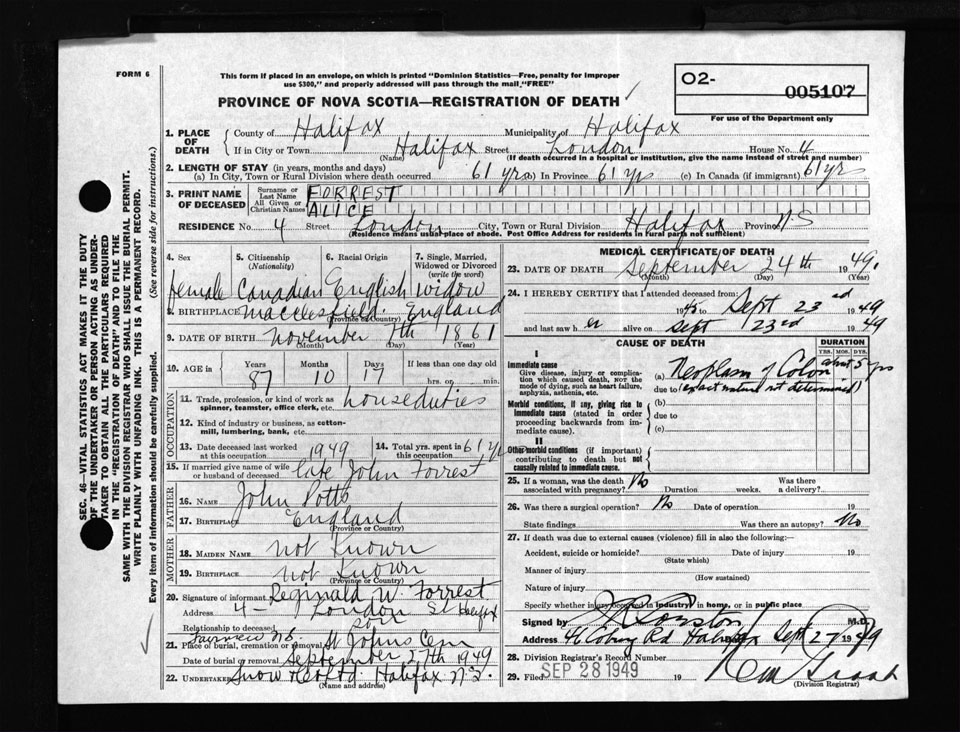 FORM 6
This form if placed in an envelope, on which is printed "Dominion Statistics—Free, penalty for improper
use $300," and properly addressed will pass through the mail "FREE"
PROVINCE OF NOVA SCOTIA—REGISTRATION OF DEATH
O2-
005107
For use of the Department only
SEC. 46—VITAL STATISTICS ACT MAKES IT THE DUTY
OF THE UNDERTAKER OR PERSON ACTING AS UNDER-
TAKER TO OBTAIN ALL THE PARTICULARS REQUIRED
IN THE "REGISTRATION OF DEATH" AND TO FILE THE
SAME WITH THE DIVISION REGISTRAR WHO SHALL ISSUE THE BURIAL PERMIT.
WRITE PLAINLY WITH UNFADING INK. THIS IS A PERMANENT RECORD.
Every item of information should be carefully supplied. (See reverse side for instructions.)
1. PLACE OF DEATH County of Halifax Municipality of Halifax
If in City or Town Halifax Street London House No. 4
(Name) (If death occurred in a hospital or institution, give the name instead of street and number)
2. LENGTH OF STAY (in years, months and days)
(a) In City, Town or Rural Division where death occurred 61 yrs (b) In Province 61 yrs (c) In Canada (if immigrant) 61 yrs
3. PRINT NAME OF DECEASED Surname or Last Name FORREST
All Given or Christian Names ALICE
RESIDENCE No. 4 Street London City, Town or Rural Division Halifax Province N S
(Residence means usual place of abode. Post Office Address for residents in rural parts not sufficient)
4. Sex 5. Citizenship (Nationality) 6. Racial Origin 7. Single, Married, Widowed or Divorced (write the word)
female Canadian English widow
8. BIRTHPLACE Macclesfield England
(Province or Country)
9. DATE OF BIRTH November 7th 1861
(Month) (Day) (Year)
10. AGE in Years Months Days If less than one day old
87 10 17 hrs. or min.
OCCUPATION
11. Trade, profession, or kind of work as spinner, teamster, office clerk, etc. house duties
12. Kind of industry or business, as cotton-mill, lumbering, bank, etc.
13. Date deceased last worked at this occupation 1949 14. Total yrs. spent in this occupation 61 yrs
15. If married give name of wife or husband of deceased late John Forrest
FATHER
16. NAME John Potts
17. BIRTHPLACE England
(Province or Country)
MOTHER
18. MAIDEN NAME not known
19. BIRTHPLACE not known
(Province or Country)
20. Signature of informant Reginald W. Forrest
Address 4 - London St Halifax
Relationship to deceased son
21. Place of burial, cremation or removal Fairview N.S. St Johns Cem
Date of burial or removal September 27th 1949
22. UNDERTAKER Snow & Co Ltd. Halifax N.S.
(Name and address)
MEDICAL CERTIFICATE OF DEATH
23. DATE OF DEATH September 24th 1949.
(Month) (Day) (Year)
24. I HEREBY CERTIFY that I attended deceased from:
1945 to Sept 23rd 1949
and last saw h er alive on Sept 23rd 1949
CAUSE OF DEATH DURATION
YRS. MOS. DYS.
I
Immediate cause
Give disease, injury or complication which caused death, nor the mode of dying, such as heart failure, asphyxia, asthenia, etc.
(a) Neoplasm of Colon about 5 yrs
due to (exact nature not determined)
Morbid conditions, if any, giving rise to immediate cause (stated in order proceeding backwards from immediate cause).
(b)
due to
(c)
II
Other morbid conditions (if important) contributing to death but not causally related to immediate cause.
25. If a woman, was the death associated with pregnancy? No Duration weeks. Was there a delivery?
26. Was there a surgical operation? No Date of operation 19
State findings Was there an autopsy? No
27. If death was due to external causes (violence) fill in also the following:—
Accident, suicide or homicide? Date of injury 19
(State which)
Manner of injury
(How sustained)
Nature of injury
Specify whether injury occurred in industry, in home, or in public place
Signed by M.D.
Address Rd Halifax Sept 27 1949
28. Division Registrar's Record Number
29. Filed SEP 28 1949 19
(Division Registrar)